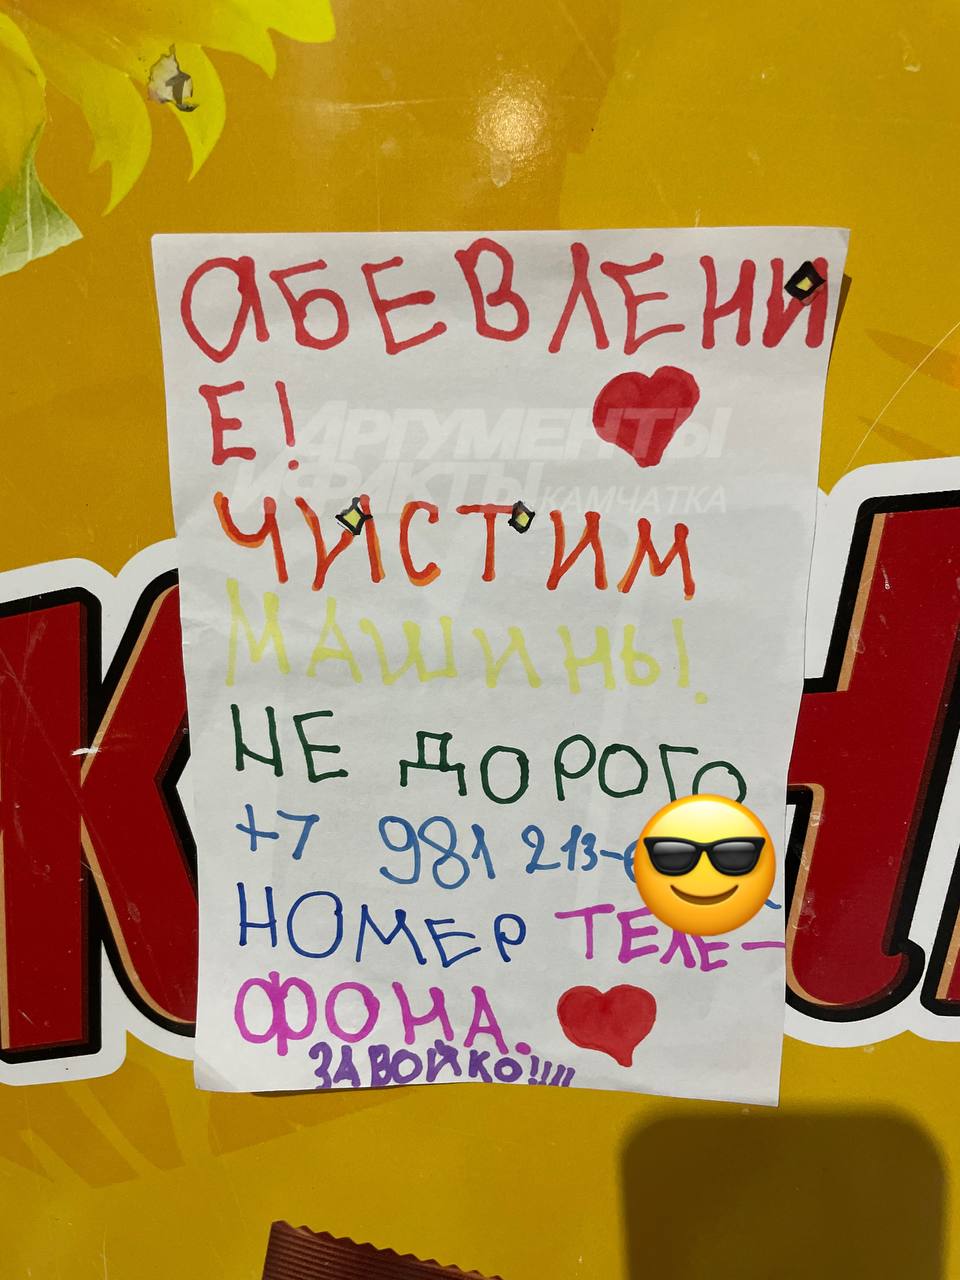 АБЕВЛЕНИ
Е!
АРГУМЕНТЫ
И ФАКТЫ КАМЧАТКА
ЧИСТИМ
МАШИНЫ!
НЕ ДОРОГО
+7 981 213-
НОМЕР ТЕЛЕ-
ФОНА.
ЗАВОЙКО!!!!